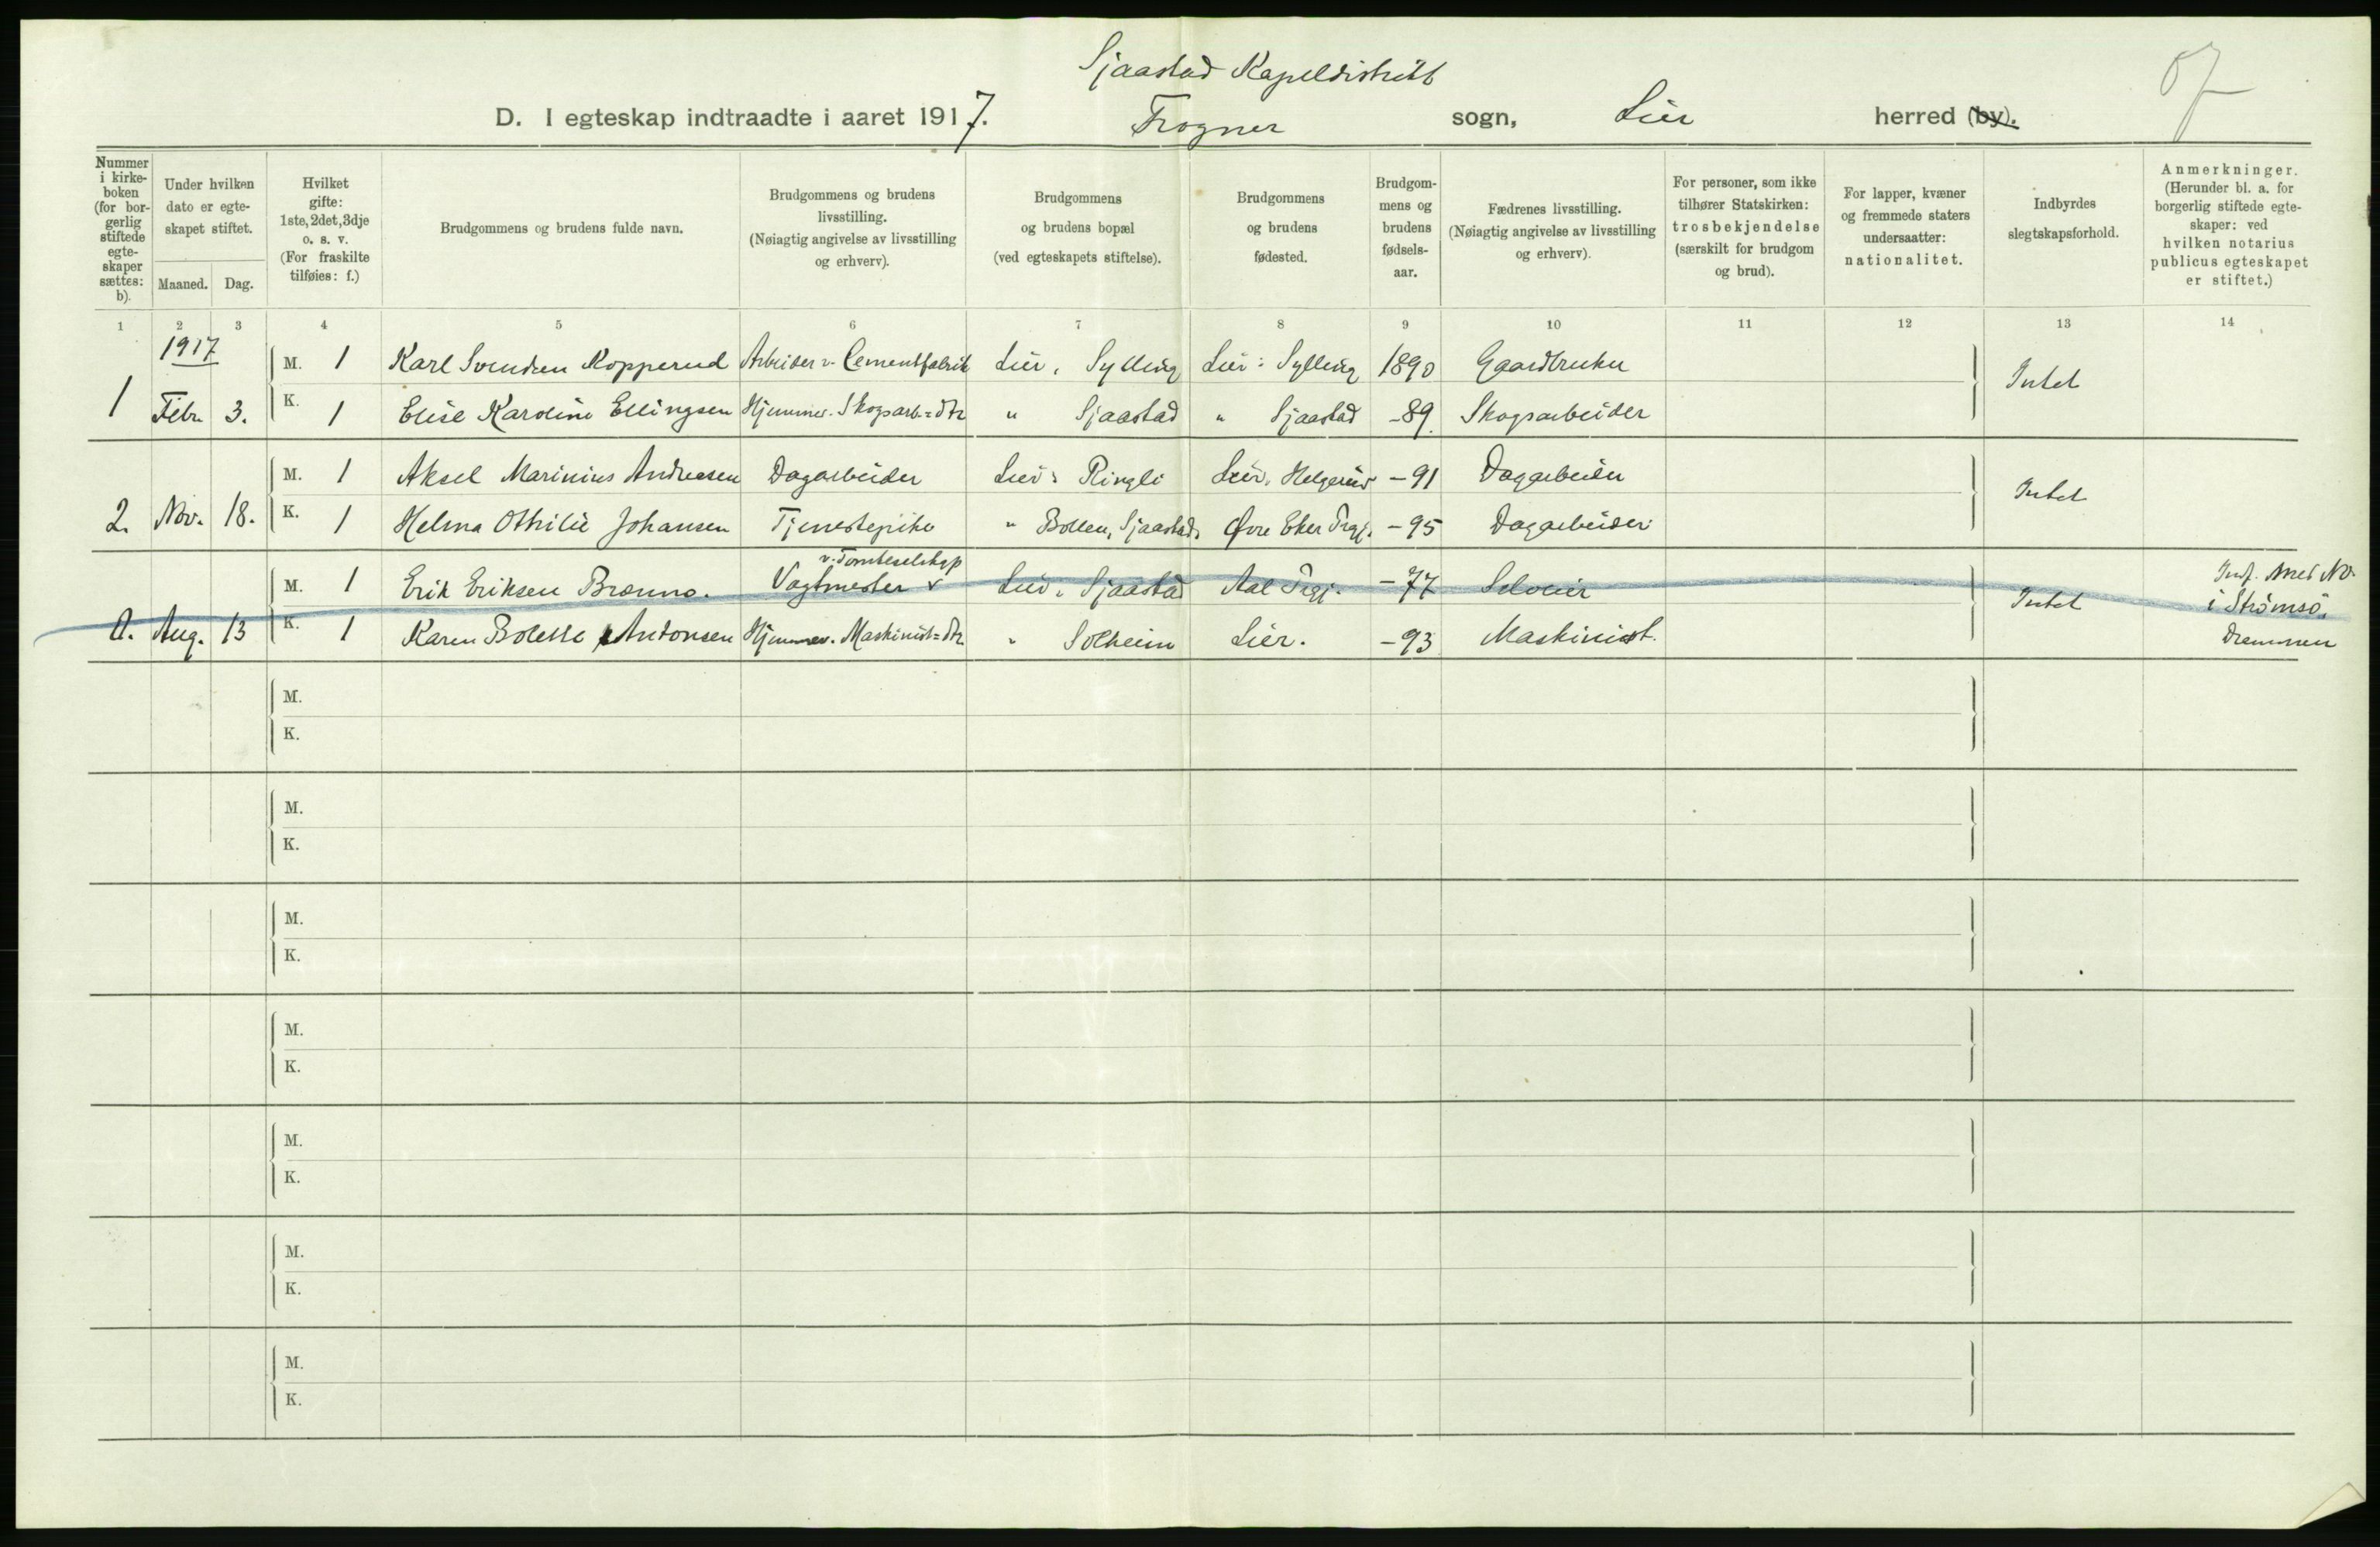 Sjaastad Kapeldistrikt
D. I egteskap indtraadte i aaret 1917. Frogner sogn, Lier herred (by).
Nummer i kirkeboken (for borgerlig stiftede egteskaper sættes: b).
Under hvilken dato er egteskapet stiftet.
Maaned. Dag.
Hvilket gifte: 1ste, 2det, 3dje o. s. v. (For fraskilte tilføies: f.)
Brudgommens og brudens fulde navn.
Brudgommens og brudens livsstilling. (Nøiagtig angivelse av livsstilling og erhverv).
Brudgommens og brudens bopæl (ved egteskapets stiftelse).
Brudgommens og brudens fødested.
Brudgommens og brudens fødselsaar.
Fædrenes livsstilling. (Nøiagtig angivelse av livsstilling og erhverv).
For personer, som ikke tilhører Statskirken: trosbekjendelse (særskilt for brudgom og brud).
For lapper, kvæner og fremmede staters undersaatter: nationalitet.
Indbyrdes slegtskapsforhold.
Anmerkninger. (Herunder bl. a. for borgerlig stiftede egteskaper: ved hvilken notarius publicus egteskapet er stiftet.)
1 2 3 4 5 6 7 8 9 10 11 12 13 14
1917
M. 1 Karl Svendsen Kopperud Arbeider v. Cementfabrik Lier, Sylling Lier: Sylling 1890 Gaardbruker
1 Febr. 3. K. 1 Elise Karoline Ellingsen Hjemmev. Skogsarb=dtr " Sjaastad " Sjaastad -89. Skogsarbeider Intet
M. 1 Aksel Marinius Andresen Dagarbeider Lier: Ringli Lier, -91 Dagarbeider
2. Nov. 18. K. 1 Helma Othilie Johansen Tjenestepike " Bollen, Sjaastad. Øvre Eker Prgj. -95 Dagarbeider Intet
v. Tomteselskap
M. 1 Erik Eriksen Brænno. Vagtmester v Lier, Sjaastad Aal Prgj. -77 Selveier
0. Aug. 13 K. 1 Karen Bolette Antonsen Hjemmev. Maskinist=dtr. " Solheim Lier. -93 Maskinist. Intet Indf. med No. i Strømsø. Drammen
M.
K.
M.
K.
M.
K.
M.
K.
M.
K.
M.
K.
M.
K.